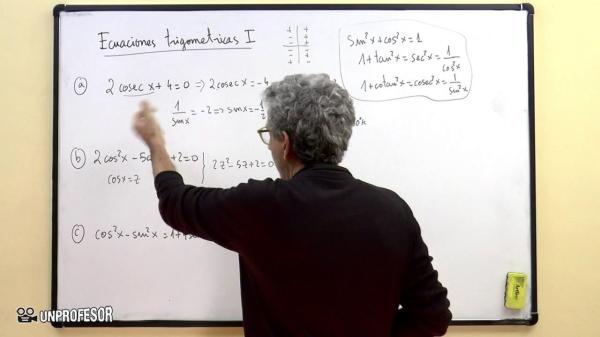 Ecuaciones trigometricas I
+ +
- +
- -
+ -
sin²x+cos²x=1
1+tan²x=sec²x=1/cos²x
1+cotan²x=cosec²x=1/sin²x
a) 2 cosec x+4=0 => 2cosec x=-4
1/sin x = -2 => sin x=-1/2
b) 2cos²x -5 +2=0 } 2z²-5z+2=0
cos x=z
c) cos²x-sin²x=1+4
UNPROFESOR